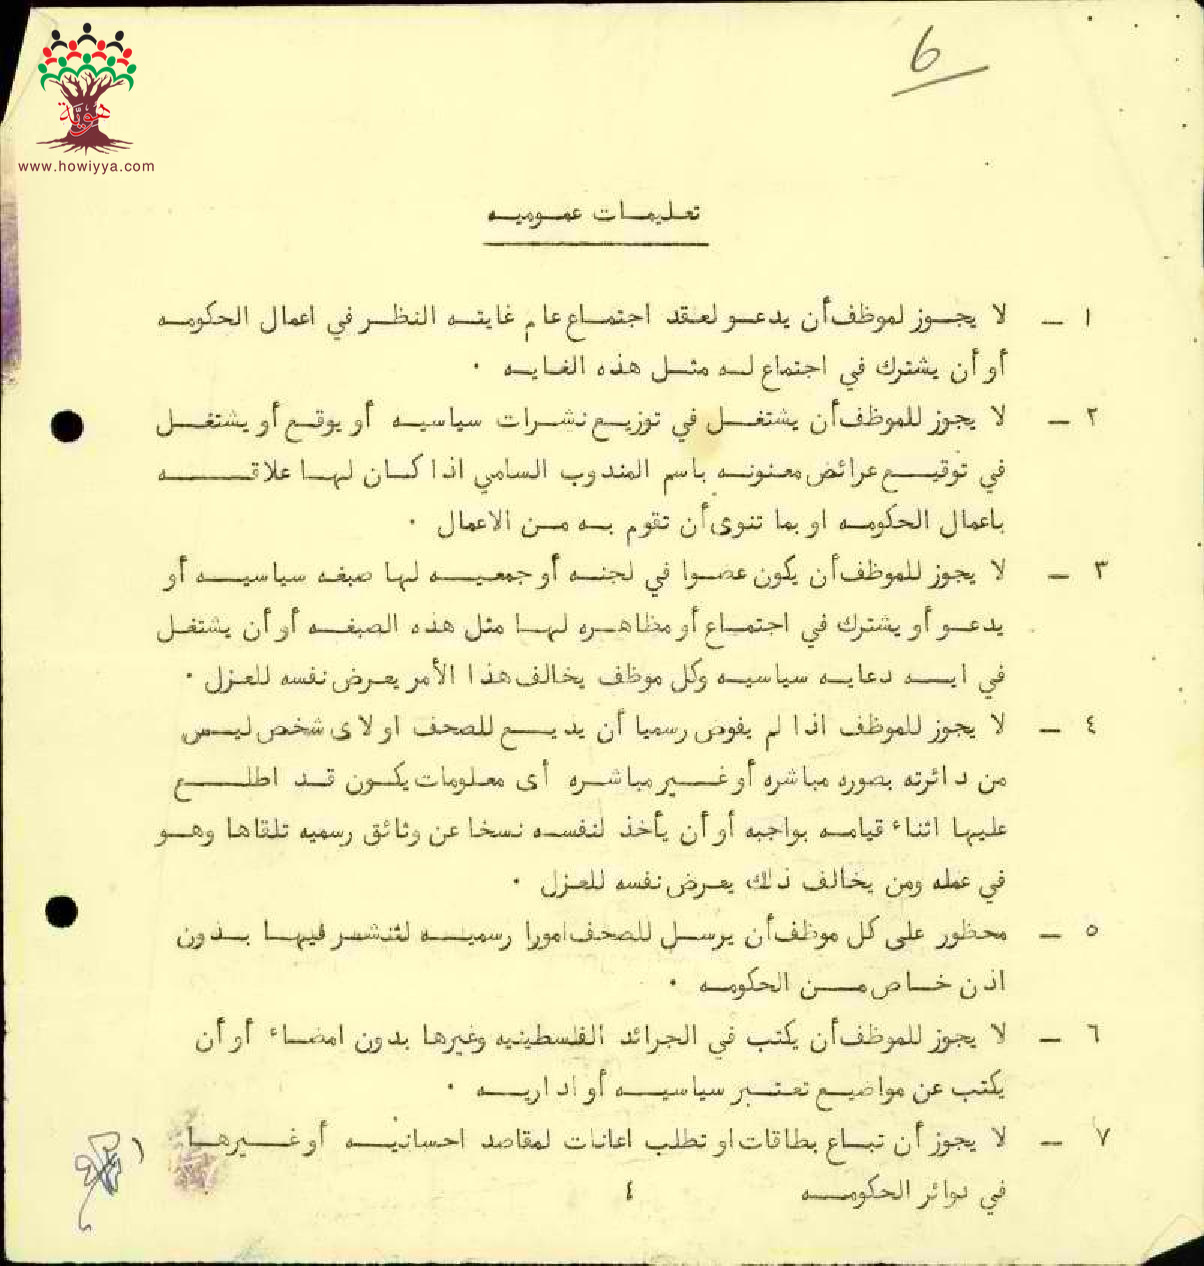 6
هوية
www.howiyya.com
تعليمات عموميه
١ — لا يجوز لموظف أن يدعو لعقد اجتماع عام غايته النظر في اعمال الحكومه
أو أن يشترك في اجتماع له مثل هذه الغايه .
٢ — لا يجوز للموظف أن يشتغل في توزيع نشرات سياسيه أو يوقع أو يشتغل
في توقيع عرائض معنونه باسم المندوب السامي اذا كان لها علاقه
باعمال الحكومه او بما تنوى أن تقوم به من الاعمال .
٣ — لا يجوز للموظف أن يكون عضوا في لجنه أو جمعيه لها صبغه سياسيه أو
يدعو أو يشترك في اجتماع أو مظاهره لها مثل هذه الصبغه أو أن يشتغل
في ايه دعايه سياسيه وكل موظف يخالف هذا الأمر يعرض نفسه للعزل .
٤ — لا يجوز للموظف اذا لم يفوض رسميا أن يذيع للصحف او لاى شخص ليس
من دائرته بصوره مباشره أو غير مباشره أى معلومات يكون قد اطلع
عليها اثناء قيامه بواجبه أو أن يأخذ لنفسه نسخا عن وثائق رسميه تلقاها وهو
في عمله ومن يخالف ذلك يعرض نفسه للعزل .
٥ — محظور على كل موظف أن يرسل للصحف امورا رسميه لتنشر فيها بدون
اذن خاص من الحكومه .
٦ — لا يجوز للموظف أن يكتب في الجرائد الفلسطينيه وغيرها بدون امضاء أو أن
يكتب عن مواضيع تعتبر سياسيه أو اداريه .
٧ — لا يجوز أن تباع بطاقات او تطلب اعانات لمقاصد احسانيه أو غيرها
في دوائر الحكومه ٤